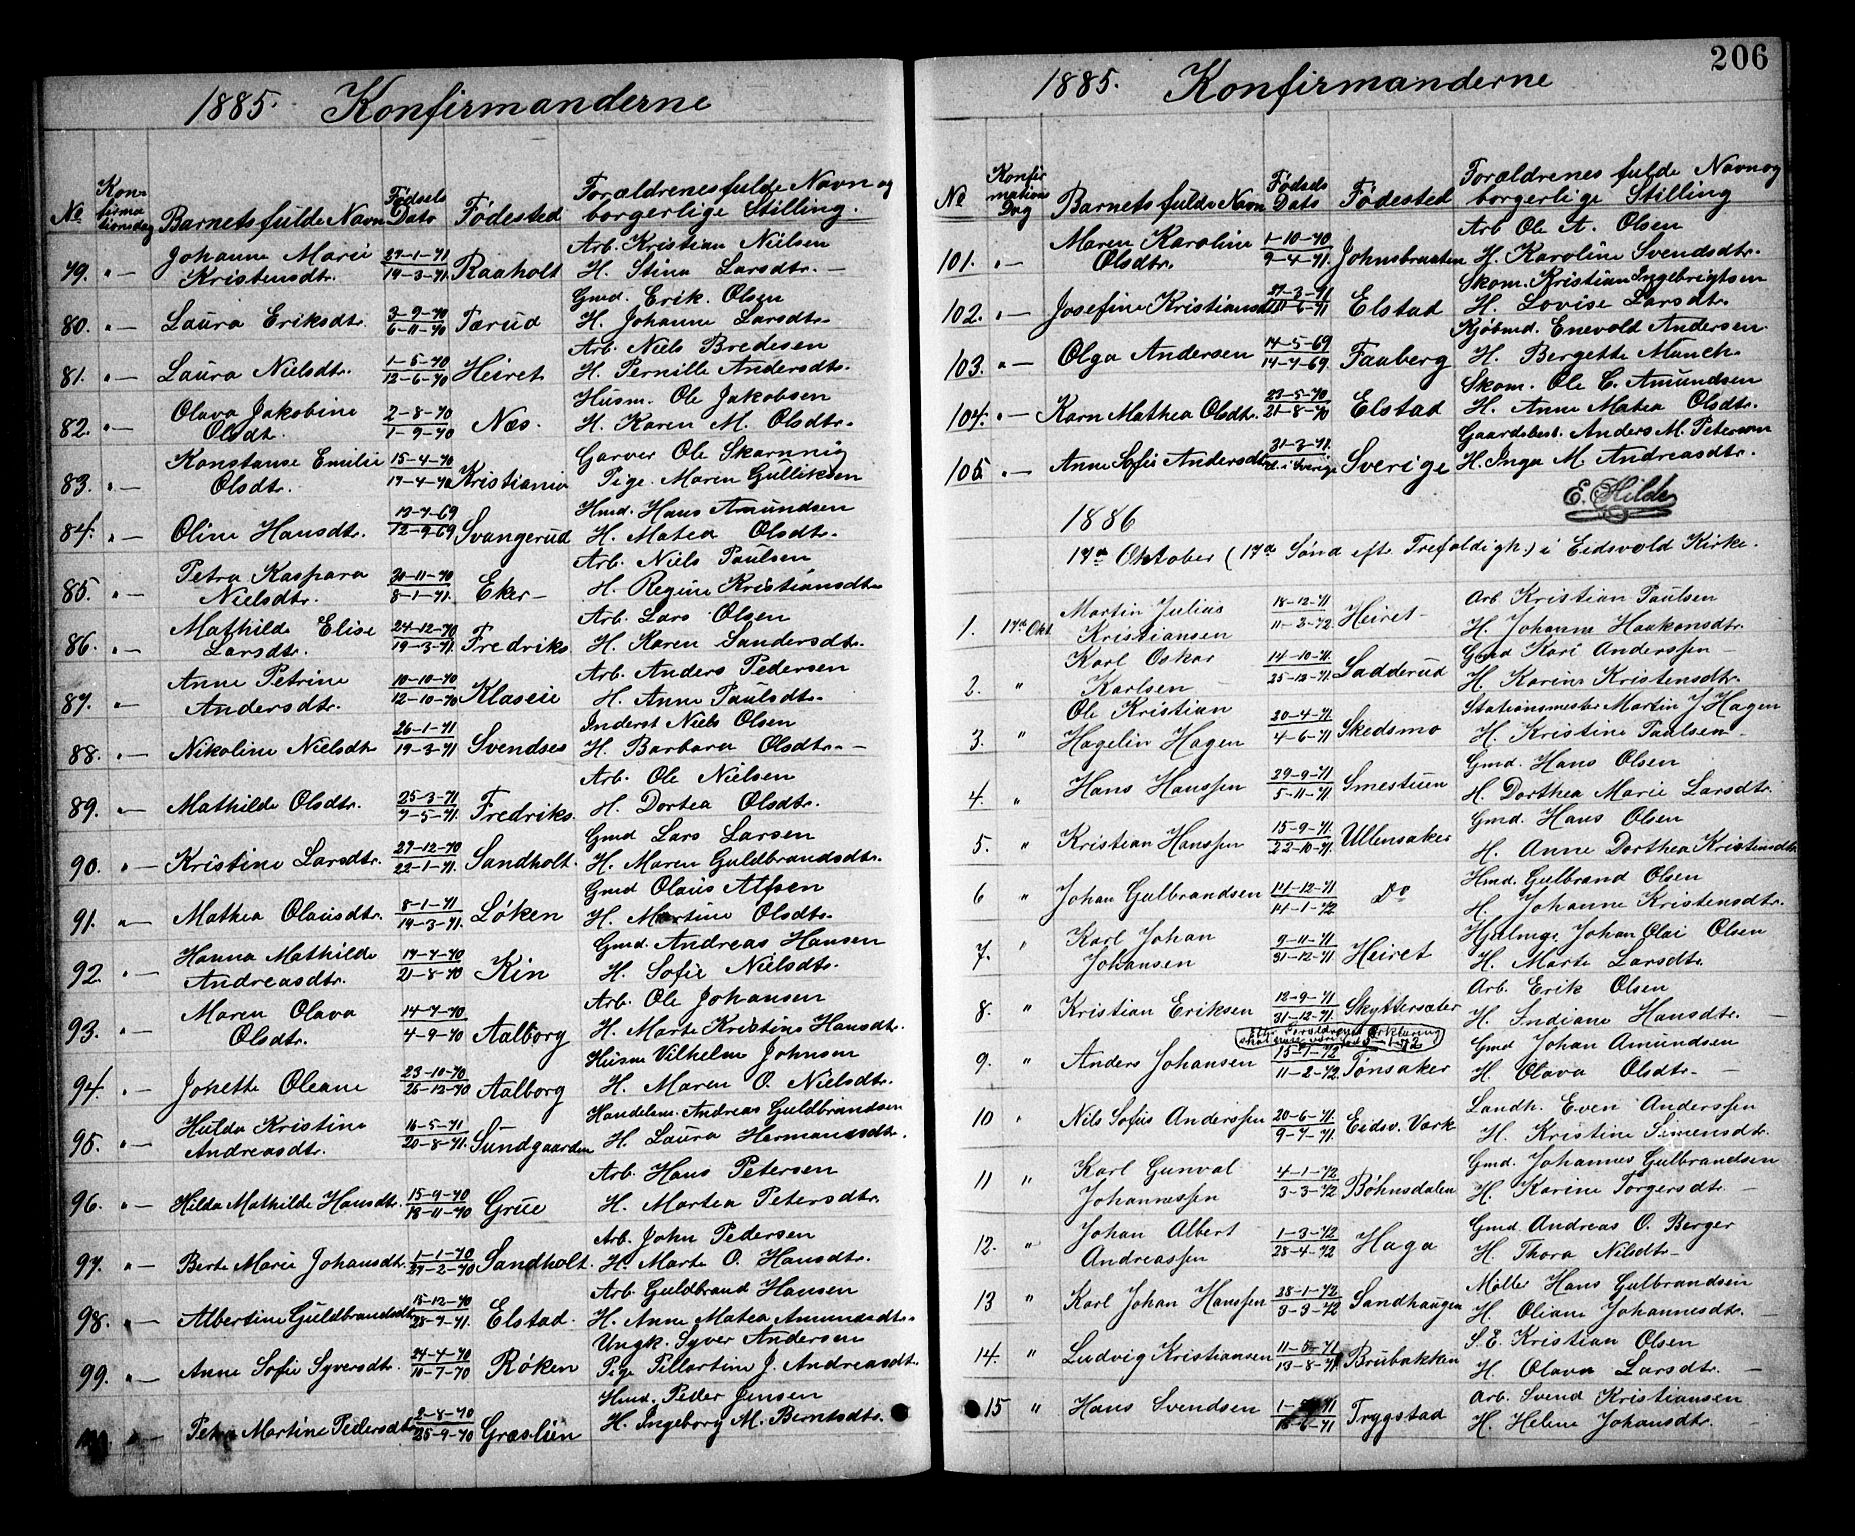 1885. Konfirmanderne
No Konfirmationsdag Barnets fulde Navn Fødsels Dato Fødested Forældrenes fulde Navn og borgerlige Stilling.
79. „— Johanne Marie Kristensdtr. 27-1-71 19-3-71 Raaholt Arb. Kristian Nielsen H. Stina Larsdtr. —
80. „— Laura Eriksdtr. 3-9-70 6-11-70 Tærud Gmd. Erik Olsen H. Johanne Larsdtr.
81. „— Laura Nielsdtr. 1-5-70 12-6-70 Heiret Arb. Niels Bredesen H. Pernille Andersdtr.
82. „— Olava Jakobine Olsdt. 2-8-70 1-9-70 Næs. Husm. Ole Jakobsen H. Karen M. Olsdtr.
83. „— Konstanse Emilie Olsdtr. 15-4-70 17-4-70 Kristiania Garver Ole Skarnnig Pige. Maren Gulliksen
84. „— Oline Hansdtr. 13-7-69 12-9-69 Svangerud Hmd. Hans Amundsen H. Matea Olsdtr.
85. „— Petra Kaspara Nielsdtr. 30-11-70 8-1-71. Eker — Arb. Niels Paulsen H. Regine Kristiansdtr
86. „— Mathilde Elise Larsdtr. 24-12-70 19-3-71. Fredriks. Arb. Lars Olsen H. Karen Sandersdtr.
87. „— Anne Petrine Andersdtr. 10-10-70 12-10-70 Klaseie Arb. Anders Pedersen H. Anne Paulsdtr.
88. „— Nikoline Nielsdt 26-1-71 19-3-71 Svendses Inderst Niels Olsen H. Barbara Olsdtr. —
89. „— Mathilde Olsdtr. 25-3-71 7-5-71. Fredriks. Arb. Ole Nielsen H. Dortea Olsdtr.
90. „— Kristine Larsdtr. 27-12-70 22-1-71. Sandholt. Gmd Lars Larsen H. Maren Guldbrandsdtr.
91. „— Mathea Olausdtr. 8-1-71 19-3-71. Løken Gmd Olaus Alfsen H. Martine Olsdtr.
92. „— Hanna Mathilde Andreasdtr. 17-7-70 21-8-70 Kin Gmd. Andreas Hansen H. Sofie Nielsdtr.
93. „— Maren Olava Olsdtr. 14-7-70 4-9-70 Aalborg Arb. Ole Johansen H. Marte Kristine Hansdtr.
94. „— Johette Oleane 23-10-70 26-12-70 Aalborg Husm Vilhelm Johnsen H. Maren O. Nielsdtr.
95. „— Hulda Kristine Andreasdtr. 16-5-71 20-8-71. Sundgaarden Handelsm. Andreas Guldbrandsen H. Laura Hermansdtr.
96. „— Hilda Mathilde Hansdtr. 15-9-70 18-11-70 Grue Arb. Hans Petersen H. Martea Petersdtr.
97. „— Berte Marie Johansdtr. 1-1-70 27-2-70 Sandholt. Arb. John Pedersen H. Marte O. Hansdtr.
98. „— Albertine Guldbrandsdtr 15-12-70 28-7-71. Elstad. Arb. Guldbrand Hansen H. Anne Matea Amundsdtr.
99. „— Anne Sofie Syversdtr. 24-4-70 10-7-70 Røken Ungk. Syver Andersen Pige J. Andreasdt.
100 „— Petra Martine Pedersdtr 2-8-70 25-9-70 Græslien Hmd. Peder Jensen H. Ingeborg M. Berntsdtr.
206
1885. Konfirmanderne
No Konfirmations Dag Barnets fulde Navn Fødsels Dato Fødested Forældrenes fulde Navn og borgerlige Stilling
101. „— Maren Karoline Olsdtr. 1-10-70 9-4-71. Johnsbraaten Arb Ole A. Olsen H. Karoline Svendsdtr.
102. „— Josefine Kristiansdt 27-3-71 11-6-71 Elstad Skom. Kristian Ingebrigtsen H. Lovise Larsdtr
103. „— Olga Andersen 14-5-69 14-7-69. Faaberg Kjøbmd. Enevold Andersen H. Bergette Munch.
104. „— Karn Mathea Olsdtr. 23-5-70 21-8-70 Elstad Skom. Ole C. Amundsen H. Anne Matea Olsdtr.
105. „— Anne Sofie Andersdtr 31-3-71. i Sverige Sverige Gaardsbest. Anders M. Peterson H. Inga M. Andreasdtr.
E. Hilde
1886
17de Oktober (17de Sønd eft. Trefoldigh.) i Eidsvold Kirke.
1. 17de Okt. Martin Julius Kristiansen 18-12-71 11-2-72. Heiret Arb. Kristian Paulsen H. Johanne Haakonsdtr.
2. „ Karl Oskar Karlsen 14-10-71. 25-12-71. Ladderud Gmd Karl Anderssen — H. Karine Kristensdtr.
3. „ Ole Kristian Hagelin Hagen 20-4-71 4-6-71 Skedsmo Stationsmester Martin J Hagen H. Kristine Paulsen
4. „ Hans Hanssen 29-9-71 5-11-71 Smestuen Gmd. Hans Olsen H. Dorthea Marie Larsdtr.
5. „ Kristian Hanssen 15-9-71. 22-10-71. Ullensaker Gmd. Hans Olsen H. Anne Dorthea Kristiansdtr
6 „ Johan Gulbrandsen 14-12-71 14-1-72 Do Hmd. Gulbrand Olsen H. Johanne Kristensdtr.
7. „ Karl Johan Johansen 9-11-71 31-12-71 Heiret Johan Olai Olsen H. Marte Larsdtr.
8. „ Kristian Eriksen 12-9-71 31-12-71. Skyttersæter Arb. Erik Olsen H. Indiane Hansdtr.
9. „ Anders Johansen 15-1-72 11-2-72. Tønsaker Gmd Johan Amundsen H. Olava Olsdtr. —
Eftr. Forældrenes Erklæring skal være
10 „ Nils Sofus Anderssen 20-6-71. 9-7-71. Eidsv. Værk Landh. Even Anderssen H. Kristine Simensdtr.
11 „ Karl Gunval Johannessen 4-1-72 3-3-72 Bøhnsdalen Gmd. Johannes Gulbrandsen H. Karine Torgersdtr. —
12. „ Johan Albert Andreassen 1-3-72 28-4-72 Haga Gmd. Andreas O. Berger H. Thora Nilsdtr —
13 „ Karl Johan Hanssen 28-1-72 3-3-72 Sandhaugen Møller Hans Gulbrandsen H. Oliane Johannesdtr.
14. „ Ludvig Kristiansen 11-5-71 13-8-71 Brubakken S.E. Kristian Olsen H. Olava Larsdtr. —
15 „ Hans Svendsen Trygstad Arb. Svend Kristiansen H. Helene Johansdtr. —